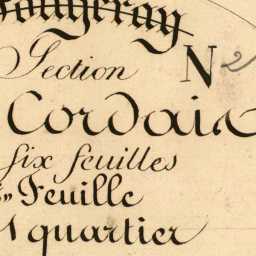 Fougeray
Section N 2
Cordais
six feuilles
Feuille
quartier